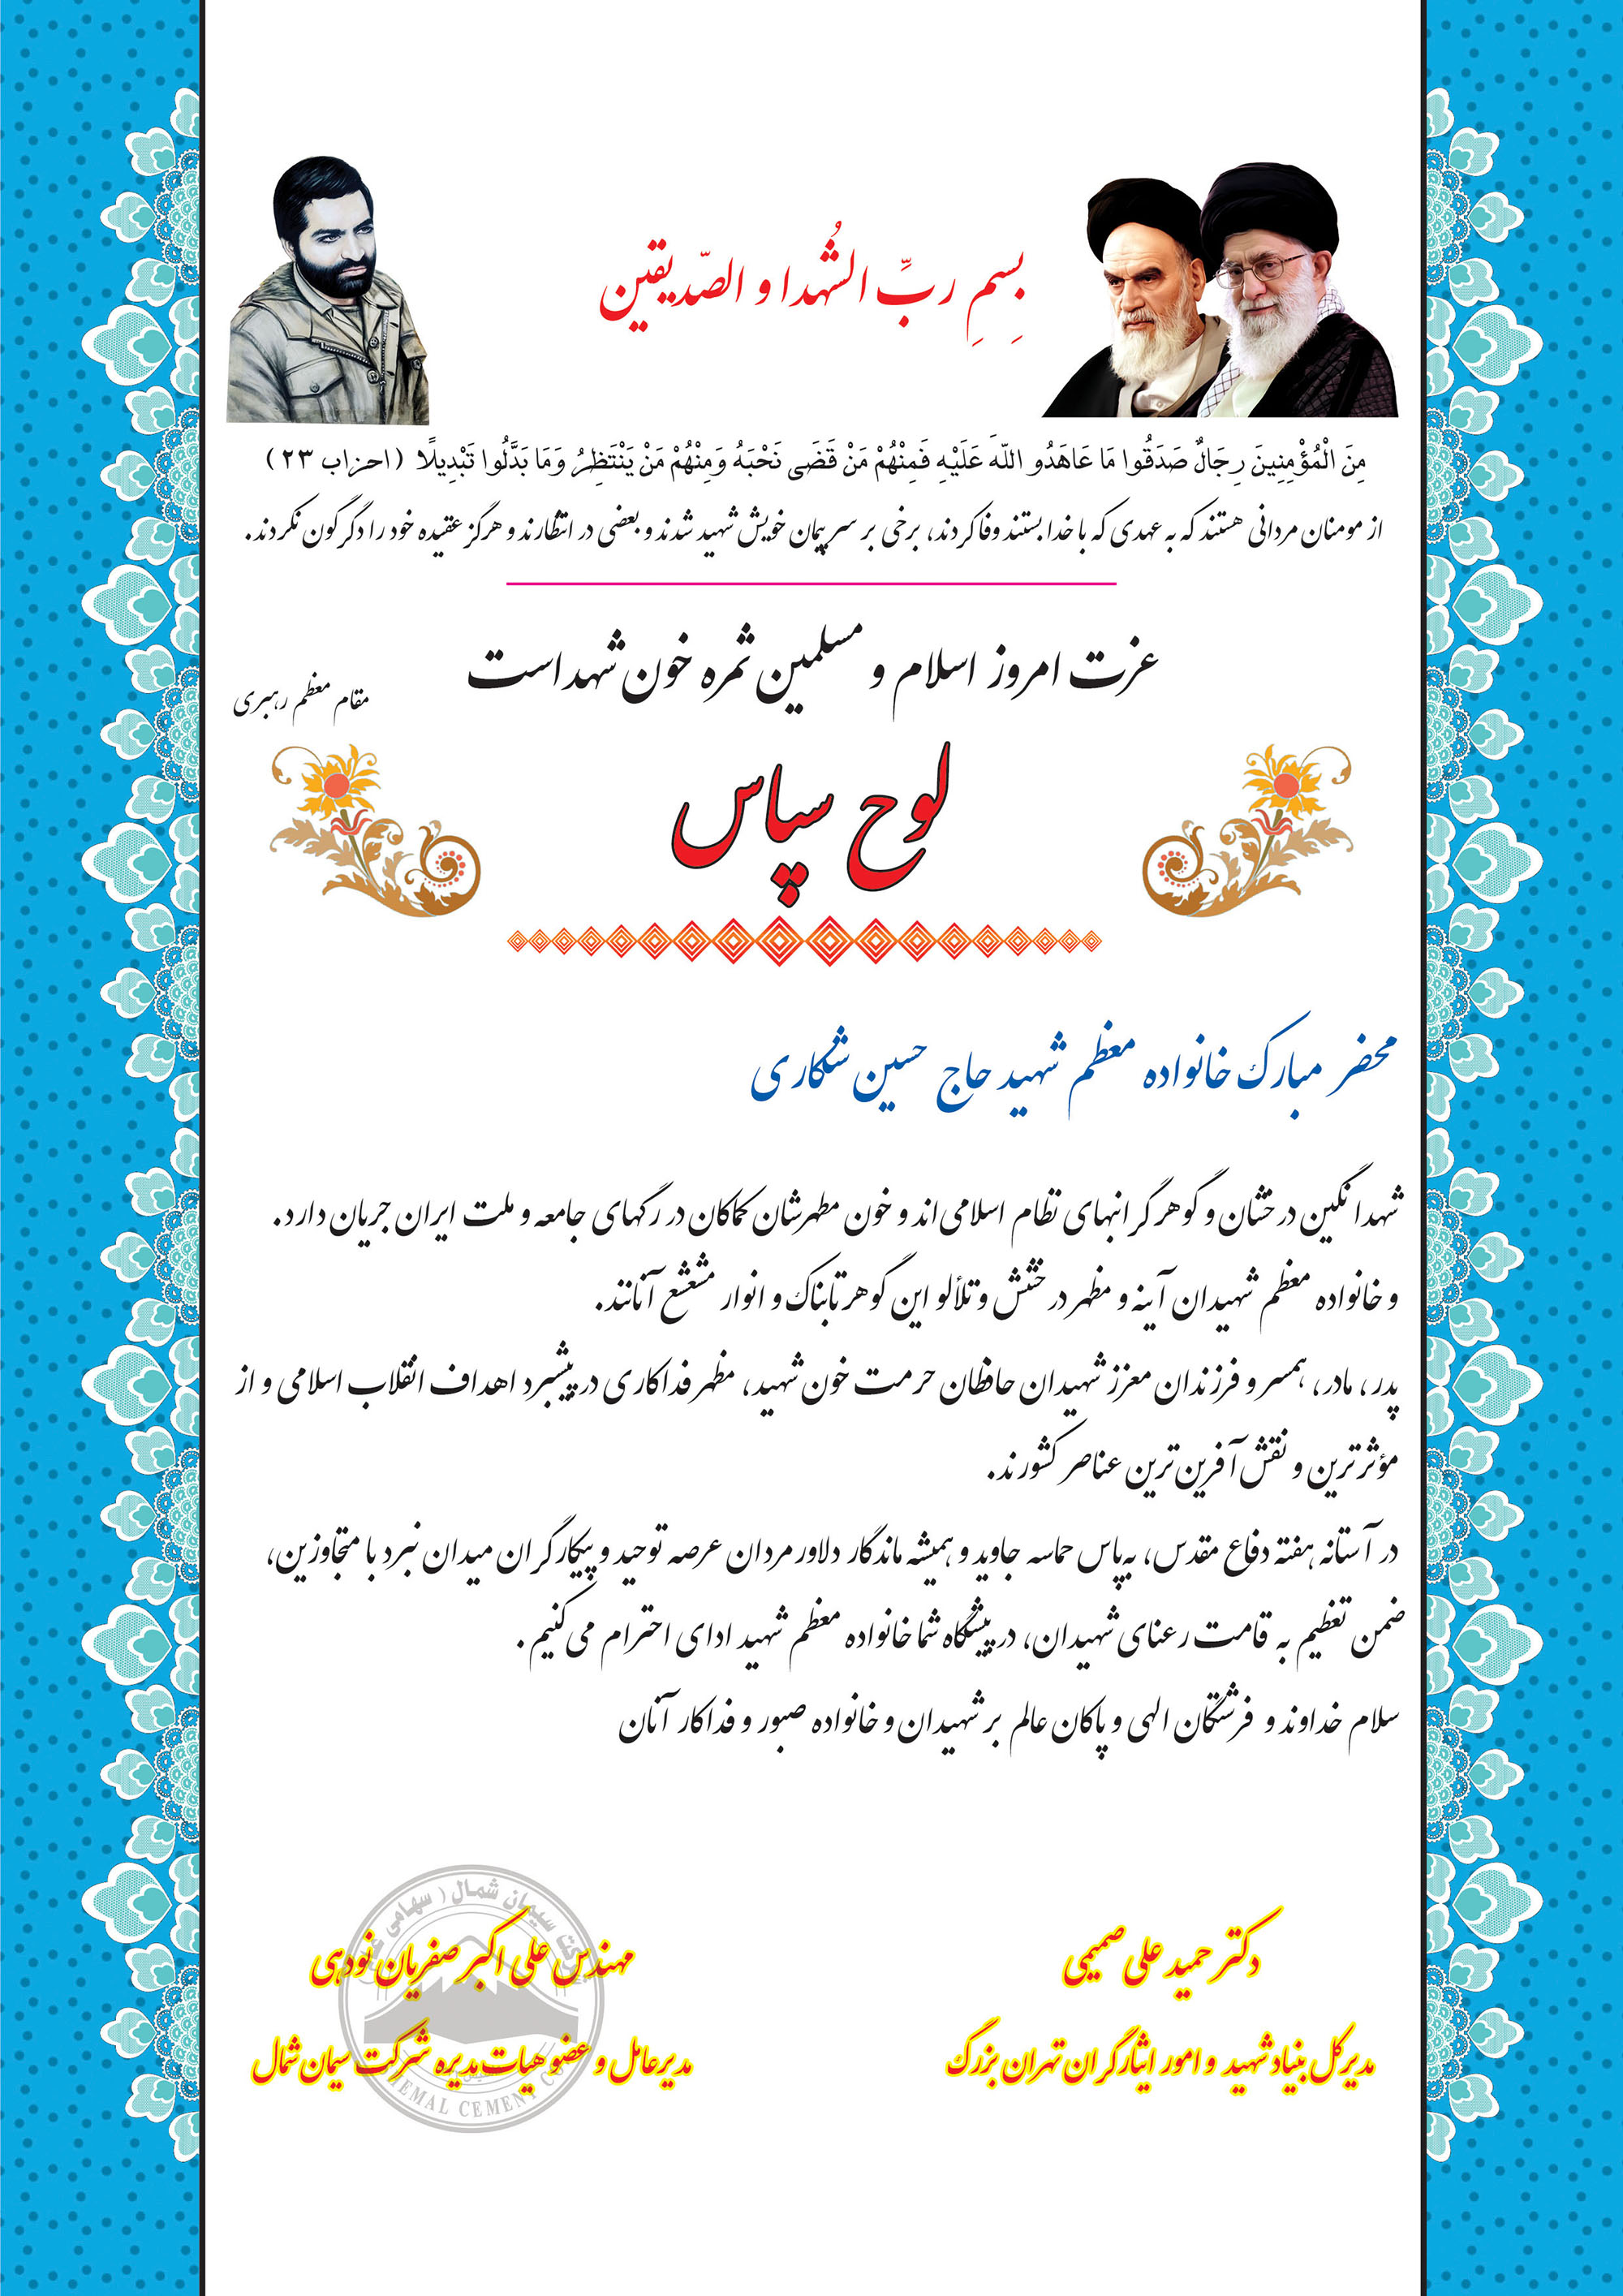 بِسِمِ ربِّ الشُهدا و الصّدیقین
مِنَ الْمُؤْمِنِينَ رِجَالٌ صَدَقُوا مَا عَاهَدُو اللَّهَ عَلَيْهِ فَمِنْهُمْ مَنْ قَضَى نَحْبَهُ وَمِنْهُمْ مَنْ يَنْتَظِرُ وَمَا بَدَّلُوا تَبْدِيلًا (احزاب ۲۳)
از مومنان مردانی هستند که به عهدی که با خدا بستند وفا کردند، برخی بر سر پیمان خویش شهید شدند و بعضی در انتظارند و هرگز عقیده خود را دگرگون نکردند.
عزت امروز اسلام و مسلمین ثمره خون شهداست
مقام معظم رهبری
لوح سپاس
محضر مبارک خانواده معظم شهید حاج حسین شکاری
شهدا نگین درخشان و گوهر گرانبهای نظام اسلامی‌اند و خون مطهرشان کماکان در رگهای جامعه و ملت ایران جریان دارد.
و خانواده معظم شهیدان آینه و مظهر درخشش و تلألو این گوهر تابناک و انوار مشعشع آنانند.
پدر، مادر، همسر و فرزندان معزز شهیدان حافظان حرمت خون شهید، مظهر فداکاری در پیشبرد اهداف انقلاب اسلامی و از
مؤثرترین و نقش آفرین‌ترین عناصر کشورند.
در آستانه هفته دفاع مقدس، به‌پاس حماسه جاوید و همیشه ماندگار دلاورمردان عرصه توحید و پیکارگران میدان نبرد با متجاوزین،
ضمن تعظیم به قامت رعنای شهیدان، در پیشگاه شما خانواده معظم شهید ادای احترام می‌کنیم.
سلام خداوند و فرشتگان الهی و پاکان عالم بر شهیدان و خانواده صبور و فداکار آنان
دکتر حمید علی صمیمی
مدیرکل بنیاد شهید و امور ایثارگران تهران بزرگ
مهندس علی اکبر صفریان نودهی
مدیرعامل و عضو هیات مدیره شرکت سیمان شمال
سیمان شمال (سهامی
CEMENT